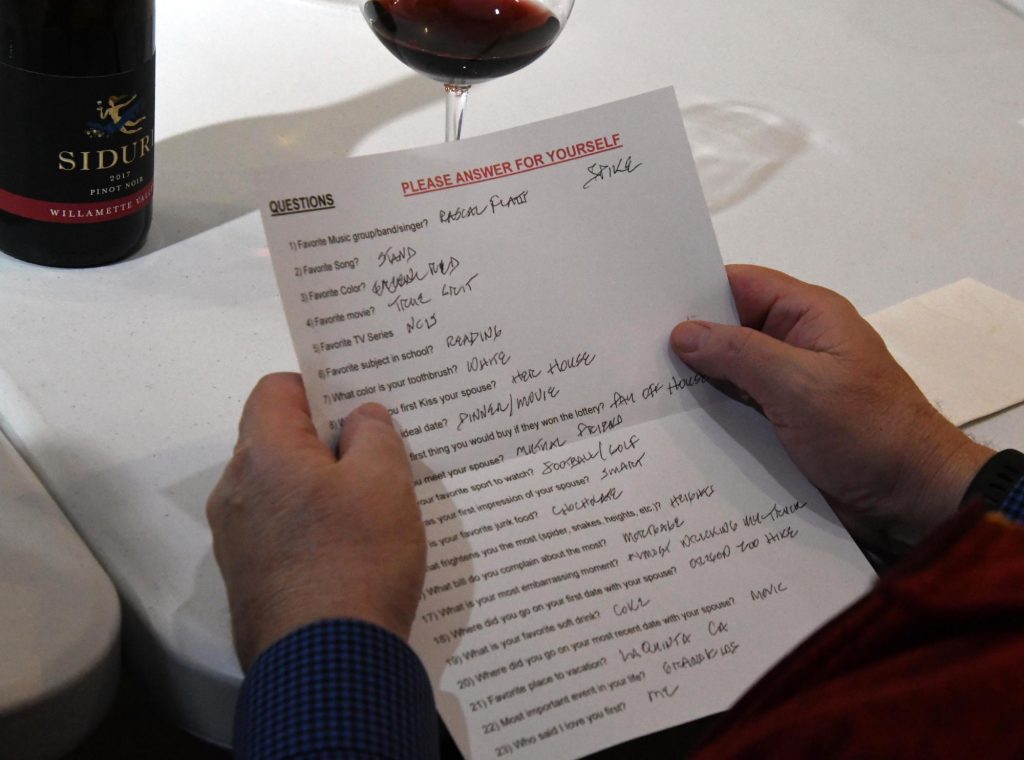 SIDURI
2017
PINOT NOIR
WILLAMETTE VAL
PLEASE ANSWER FOR YOURSELF
SPIKE
QUESTIONS
1) Favorite Music group/band/singer? RASCAL FLATTS
2) Favorite Song? STAND
3) Favorite Color?
4) Favorite movie? TRUE GRIT
5) Favorite TV Series NCIS
6) Favorite subject in school? READING
7) What color is your toothbrush? WHITE
8) you first Kiss your spouse? HER HOUSE
ideal date? DINNER/MOVIE
first thing you would buy if they won the lottery? PAY OFF HOUSE
u meet your spouse? MUTUAL FRIEND
our favorite sport to watch? FOOTBALL/GOLF
as your first impression of your spouse? SMART
is your favorite junk food? CHOCOLATE
hat frightens you the most (spider, snakes, heights, etc.)? HEIGHTS
What bill do you complain about the most? MORTGAGE
17) What is your most embarrassing moment? ALMOST WRECKING
18) Where did you go on your first date with your spouse? OREGON ZOO HIKE
19) What is your favorite soft drink? COKE
20) Where did you go on your most recent date with your spouse? MOVIE
21) Favorite place to vacation? LA QUINTA CA
22) Most important event in your life? GRANDKIDS
23) Who said I love you first? ME